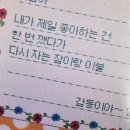 내가 제일 좋아하는 건
한 번 깼다가
다시 자는 잠이랑 이불
감동이야~